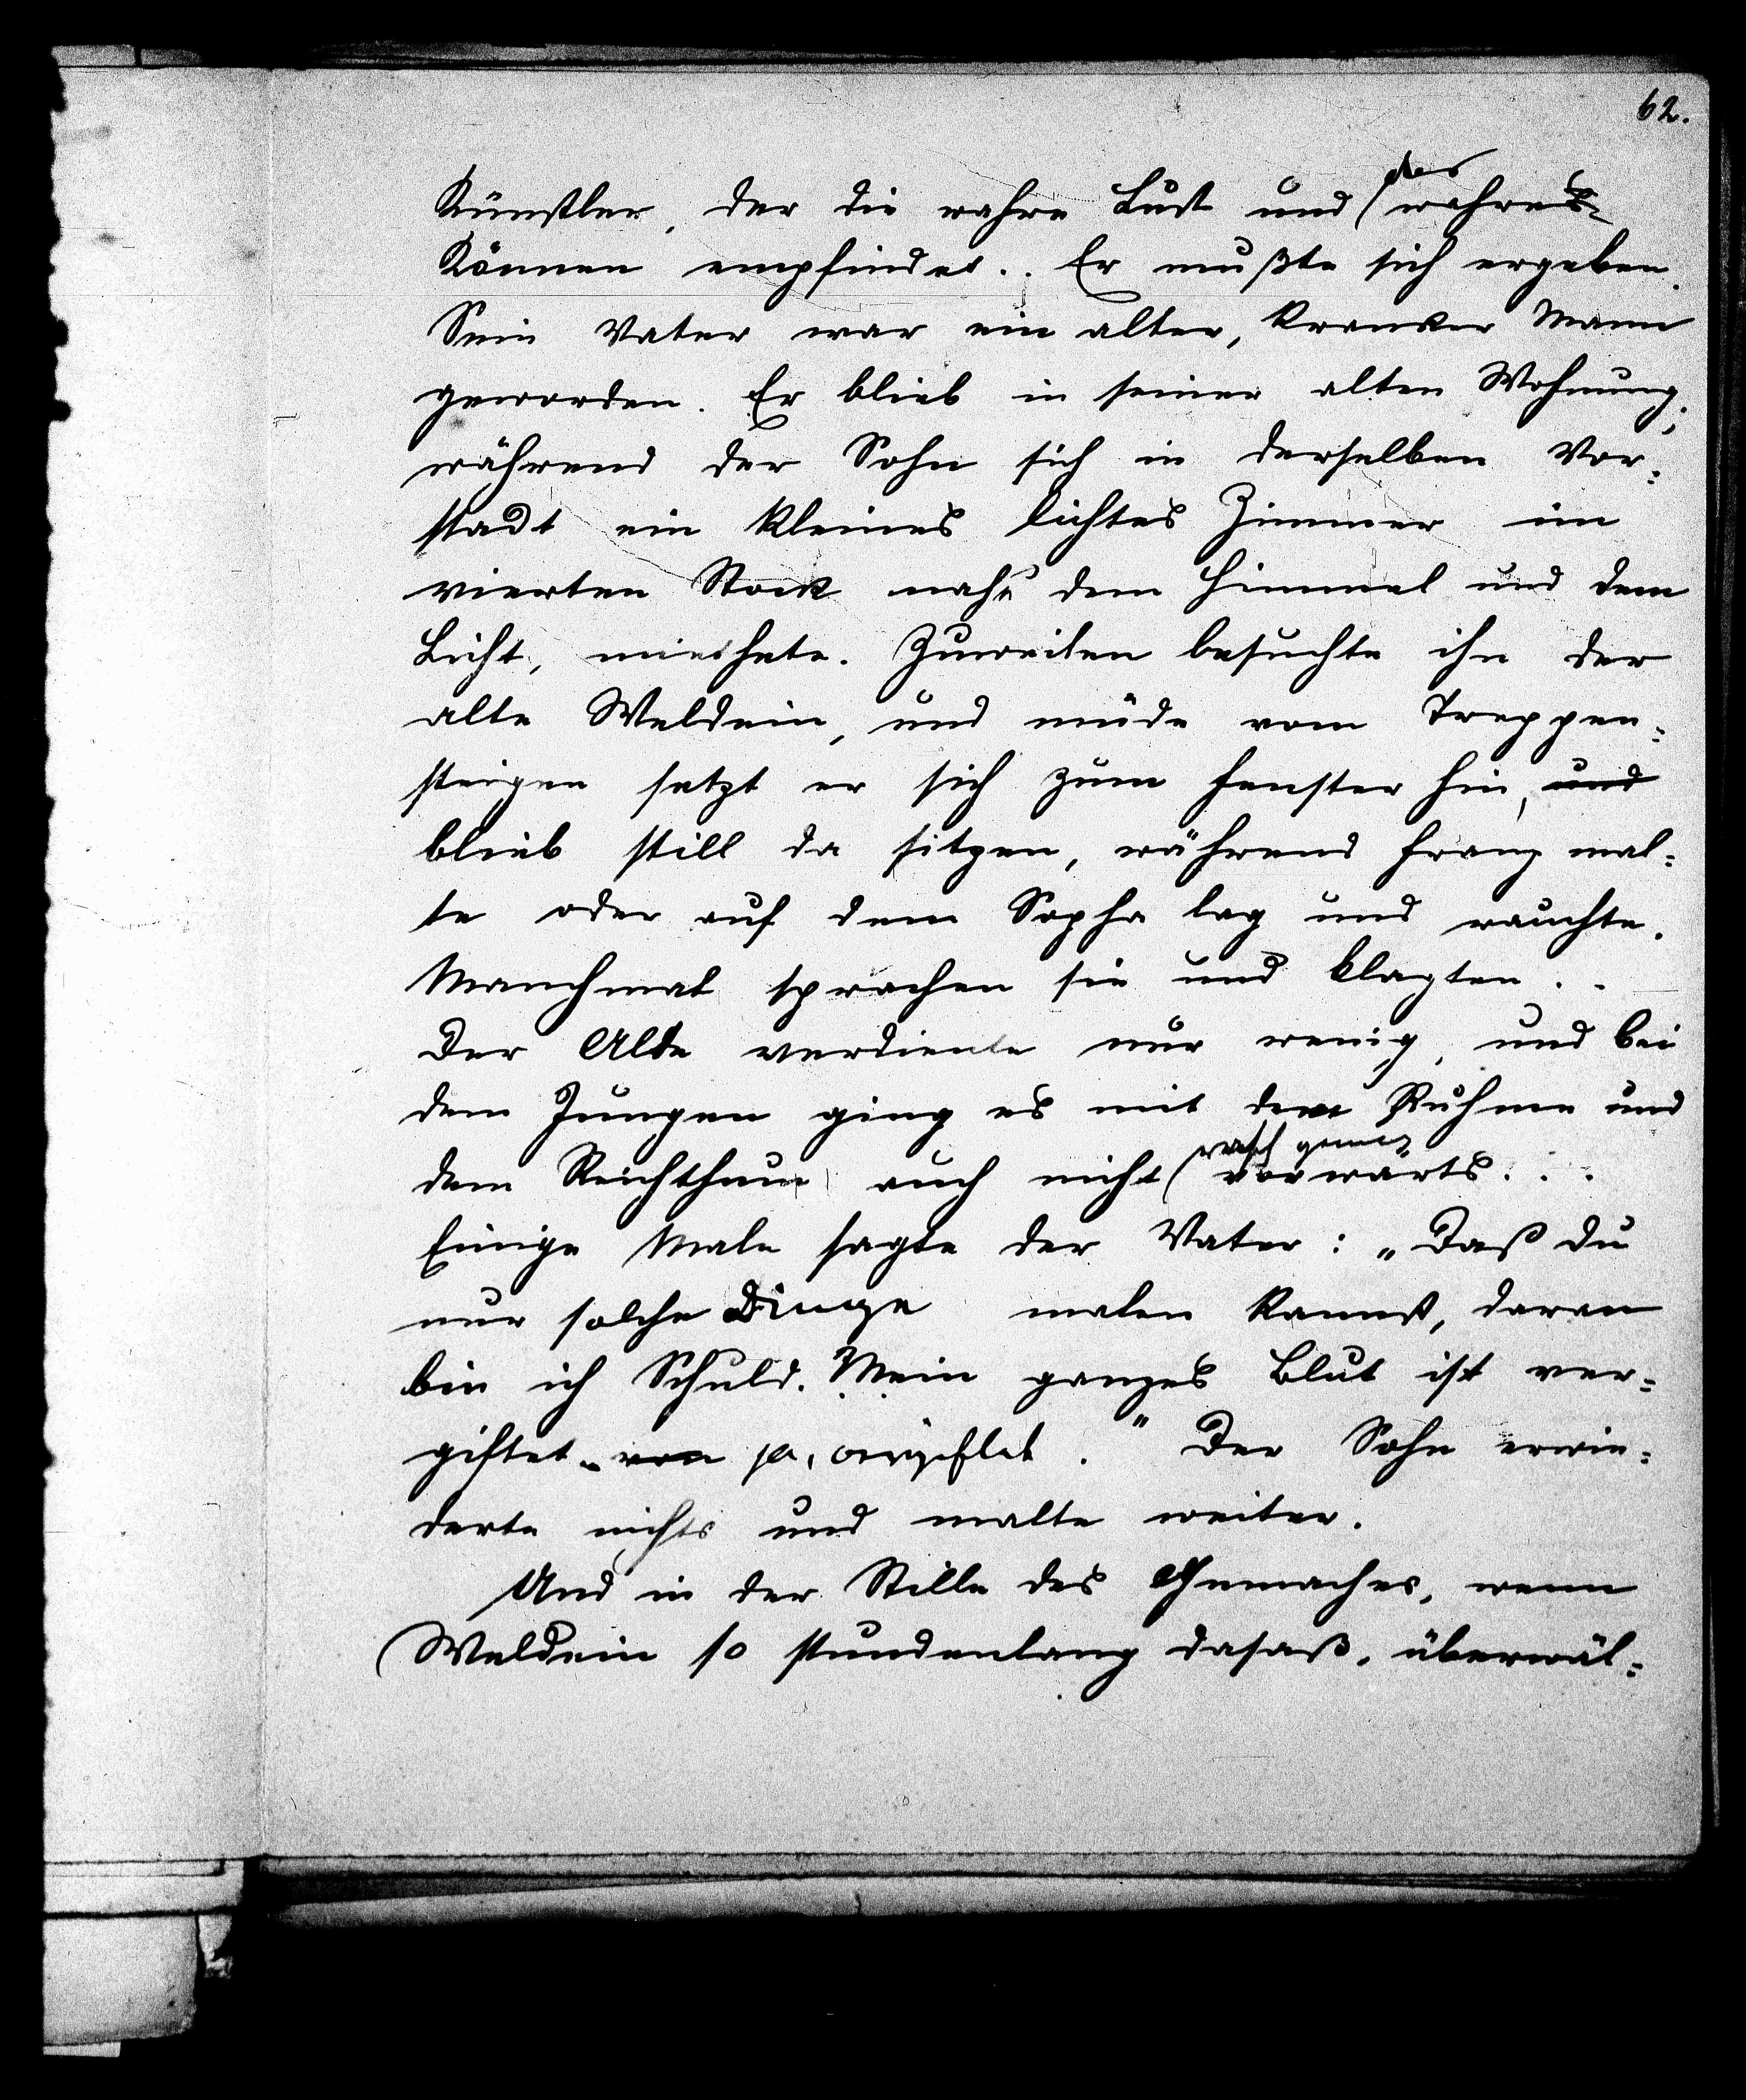 62.
Künstler, der die wahre Lust und (das wahre
Können empfindet.. Er mußte sich ergeben.
Sein Vater war ein alter, kranker Mann
geworden. Er blieb in seiner alten Wohnung;
während der Sohn sich in derselben Vor=
stadt ein kleines lichtes Zimmer im
vierten Stock nahe dem Himmel und dem
Licht, miethete. Zuweilen besuchte ihn der
alte Weldein, und müde vom Treppen=
steigen setzt er sich zum Fenster hin, und
blieb still da sitzen, während Franz mal=
te oder auf dem Sopha lag und rauchte.
Manchmal sprachen sie und klagten..
Der Alte verdiente nur wenig, und bei
dem Jungen ging es mit dem Ruhme und
dem Reichthum auch nicht (rasch genug vorwärts...
Einige Male sagte der Vater: „Daß du
nur solche Dinge malen kannst, daran
bin ich Schuld. Mein ganzes Blut ist ver=
giftet von ja, ." Der Sohn erwie=
derte nichts und malte weiter.
Und in der Stille des Gemaches, wenn
(Weldein so stundenlang dasaß, überwäl=